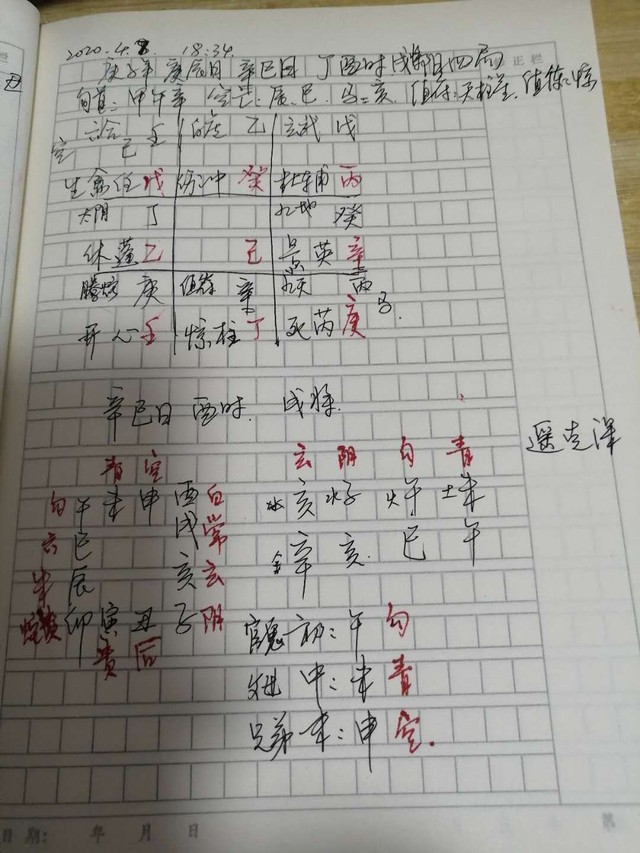 2020.4.8 18:34
庚子年 庚辰月 辛巳日 丁酉时 阳四局
旬首:甲午辛 空亡:辰.巳 马:亥 值符:天柱星.值使:惊
六合 壬 己 白虎 乙 玄武 戊
空
生禽任 戊 伤冲 癸 杜辅 丙
太阴 丁 九地 癸
休蓬 乙 己 景英 辛
螣蛇 庚 值符 辛 九天 丙
马
开心 壬 惊柱 丁 死芮 庚
辛巳日 酉时. 戌将.
遥克泽
青 空 玄 阴 勾 青
勾 午 未 申 酉 白 水 亥 水 子 火 午 土 未
六 巳 戌 常 金 辛 亥 巳 午
朱 辰 亥 玄
蛇 卯 寅 丑 子 阴 官鬼 初:午 勾
贵 后
父母 中:未 青
兄弟 末:申 空.
日期: 年 月 日
第